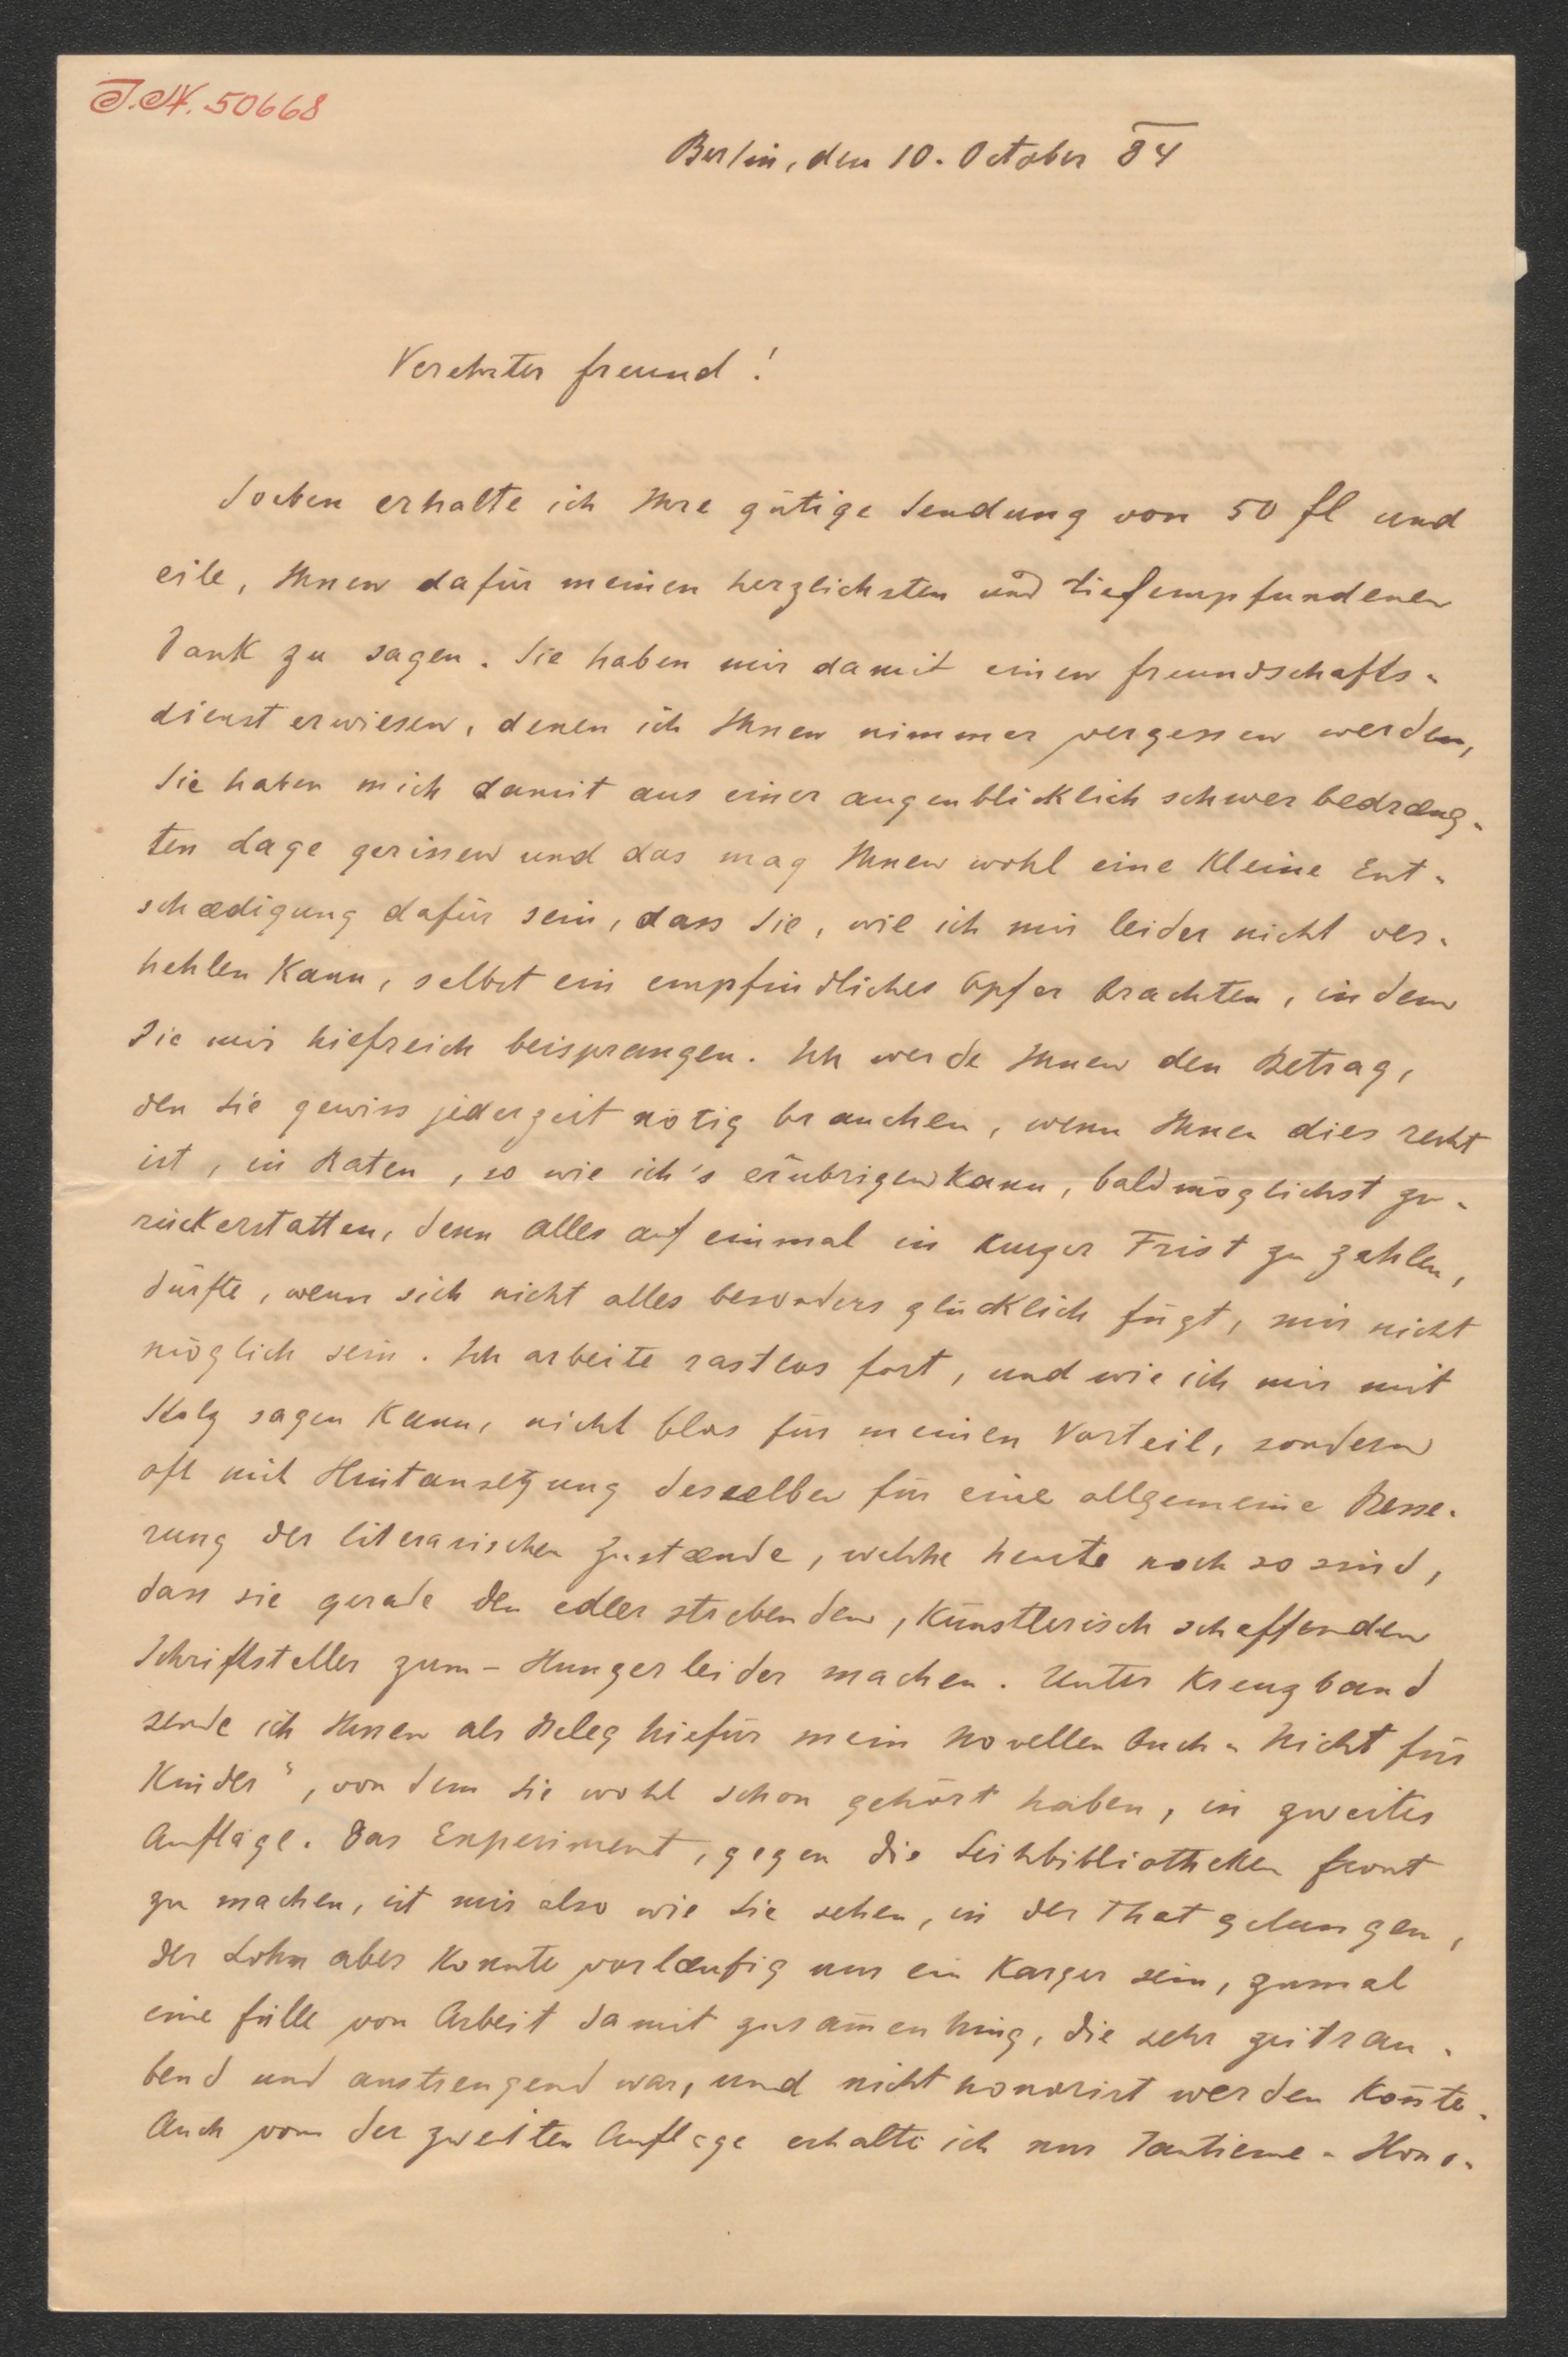 J.N. 50668
Berlin, den 10. October 84
Verehrter Freund!
Soeben erhalte ich Ihre gütige Sendung von 50 fl und
eile, Ihnen dafür meinen herzlichsten und tiefempfundenen
Dank zu sagen. Sie haben mir damit einen Freundschafts-
dienst erwiesen, denen ich Ihnen nimmer vergessen werden,
Sie haben mich damit aus einer augenblicklich schwer bedræng-
ten Lage gerissen und das mag Ihnen wohl eine kleine Ent-
schædigung dafür sein, dass Sie, wie ich mir leider nicht ver-
hehlen kann, selbst ein empfindliches Opfer brachten, indem
Sie mir hiefreich beisprangen. Ich werde Ihnen den Betrag,
den Sie gewiss jederzeit nötig brauchen, wenn Ihnen dies recht
ist, in Raten, so wie ich's erübrigen kann, baldmöglichst zu-
rückerstatten, denn alles auf einmal in kurzer Frist zu zahlen,
dürfte, wenn sich nicht alles besonders glücklich fügt, mir nicht
möglich sein. Ich arbeite rastlos fort, und wie ich mir mit
Stolz sagen kann, nicht blos für meinen Vorteil, sondern
oft mit Hintansetzung desselben für eine allgemeine Besse-
rung der literarischen Zustænde, welche heute noch so sind,
dass sie gerade den edler strebenden, künstlerisch schaffenden
Schriftsteller zum - Hungerleider machen. Unter Kreuzband
sende ich Ihnen als Beleg hiefür mein Novellenbuch „Nicht für
Kinder“, von dem Sie wohl schon gehört haben, in zweiter
Auflage. Das Experiment, gegen die Leihbibliotheken Front
zu machen, ist mir also wie Sie sehen, in der That gelungen,
der Lohn aber konnte vorlæufig nur ein karger sein, zumal
eine Fülle von Arbeit damit zusam̄enhing, die sehr zeitrau-
bend und anstrengend war, und nicht honorirt werden kon̄te.
Auch von der zweiten Auflage erhalte ich nur Tantieme-Hono-